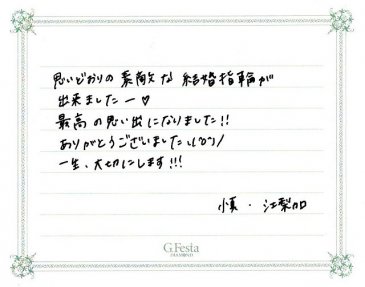 思いどおりの素敵な結婚指輪が
出来ましたー♡
最高の思い出になりました!!
ありがとうございました\(^o^)/
一生、大切にします!!!
慎・江梨加
G.Festa
DIAMOND